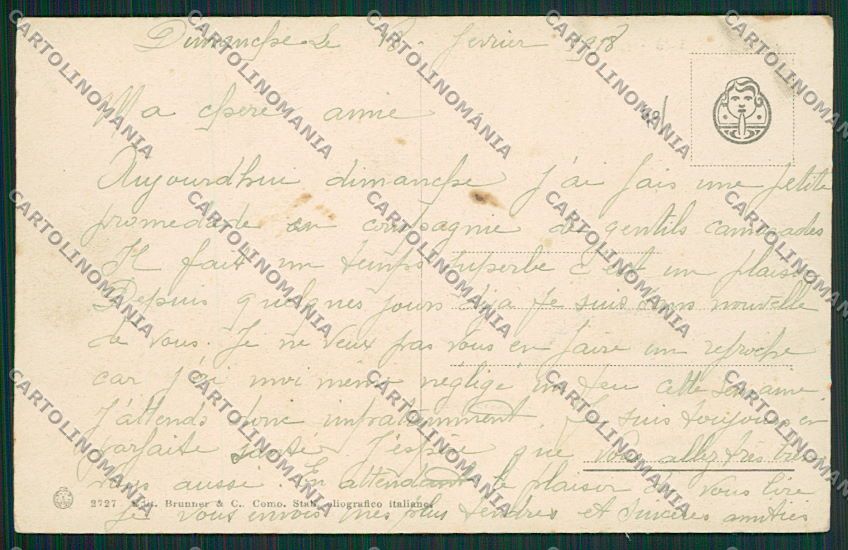 Dimanche Le 18 fevrier 1918
Ma chere amie
Aujourdhui dimanche j'ai fais une petite
promedade en compagnie de gentils camarades
Il fait un temps superbe c'est un plaisir
Depuis quelques jours deja je suis sans nouvelle
de vous. Je ne veux pas vous en faire un reproche
car j'ai moi même négligé un peu cette semaine
J'attends donc Je suis toujours en
parfaite santé. J'espère que vous allez très bien
vous aussi. En attendant le plaisir de vous lire
2727 Edit. Brunner & C., Como. Stab. eliografico italiano
Je vous envois mes plus tendres et sincères amitiés
CARTOLINOMANIA